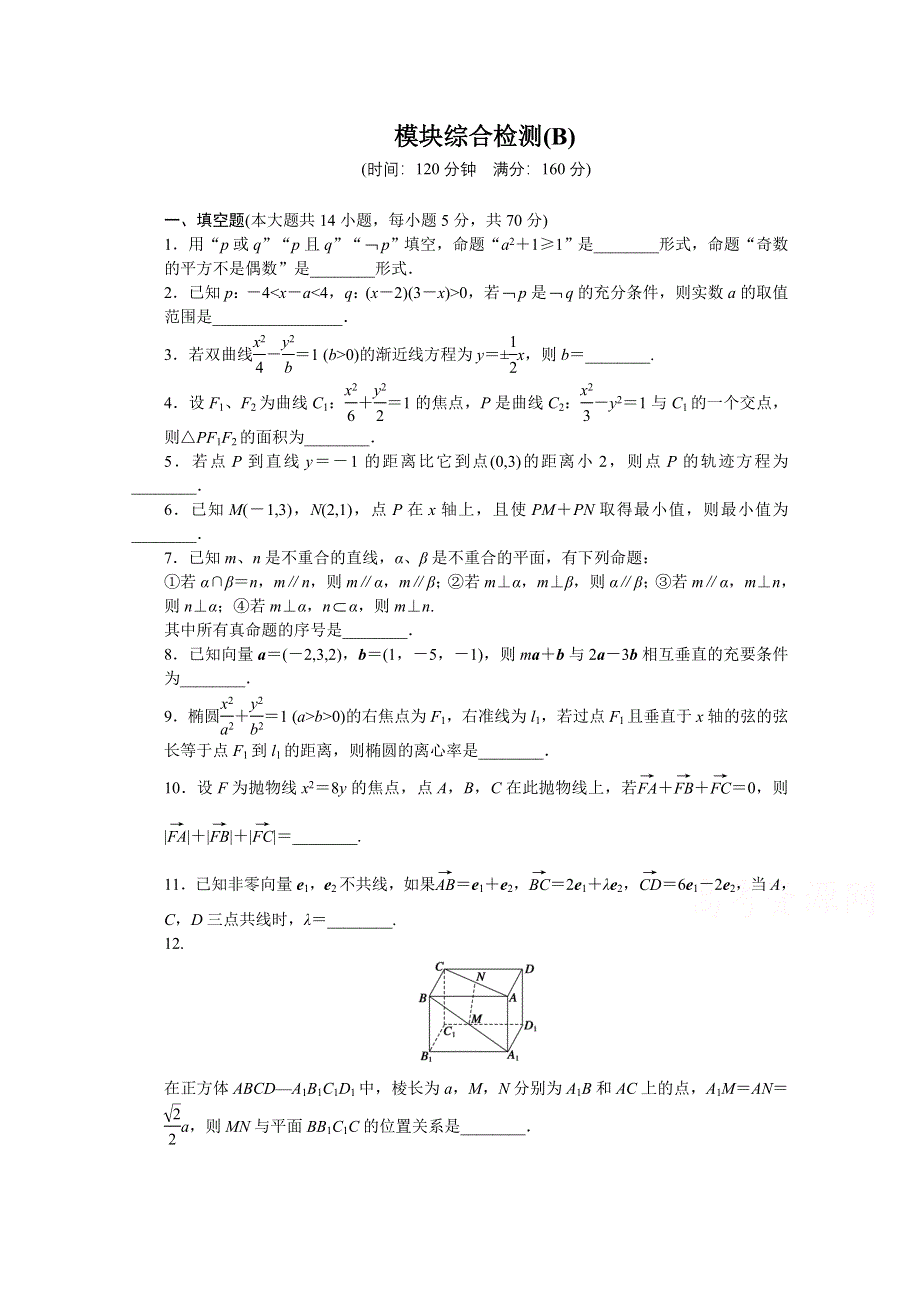 模块综合检测(B)
(时间：120分钟　满分：160分)
一、填空题(本大题共14小题，每小题5分，共70分)
1．用“p或q”“p且q”“﹁p”填空，命题“a²＋1≥1”是________形式，命题“奇数
的平方不是偶数”是________形式．
2．已知p：－4<x－a<4，q：(x－2)(3－x)>0，若﹁p是﹁q的充分条件，则实数a的取值
范围是________________．
3．若双曲线x²/4－y²/b＝1 (b>0)的渐近线方程为y＝±1/2x，则b＝________.
4．设F₁、F₂为曲线C₁：x²/6＋y²/2＝1的焦点，P是曲线C₂：x²/3－y²＝1与C₁的一个交点，
则△PF₁F₂的面积为________．
5．若点P到直线y＝－1的距离比它到点(0,3)的距离小2，则点P的轨迹方程为
________．
6．已知M(－1,3)，N(2,1)，点P在x轴上，且使PM＋PN取得最小值，则最小值为
________．
7．已知m、n是不重合的直线，α、β是不重合的平面，有下列命题：
①若α∩β＝n，m∥n，则m∥α，m∥β；②若m⊥α，m⊥β，则α∥β；③若m∥α，m⊥n，
则n⊥α；④若m⊥α，n⊂α，则m⊥n.
其中所有真命题的序号是________．
8．已知向量a＝(－2,3,2)，b＝(1，－5，－1)，则ma＋b与2a－3b相互垂直的充要条件
为________．
9．椭圆x²/a²＋y²/b²＝1 (a>b>0)的右焦点为F₁，右准线为l₁，若过点F₁且垂直于x轴的弦的弦
长等于点F₁到l₁的距离，则椭圆的离心率是________．
10．设F为抛物线x²＝8y的焦点，点A，B，C在此抛物线上，若FA→＋FB→＋FC→＝0，则
|FA→|＋|FB→|＋|FC→|＝________.
11．已知非零向量e₁，e₂不共线，如果AB→＝e₁＋e₂，BC→＝2e₁＋λe₂，CD→＝6e₁－2e₂，当A，
C，D三点共线时，λ＝________.
12.
C D
N
B A
M
C₁ D₁
B₁ A₁
在正方体ABCD—A₁B₁C₁D₁中，棱长为a，M，N分别为A₁B和AC上的点，A₁M＝AN＝
√2/2a，则MN与平面BB₁C₁C的位置关系是________．